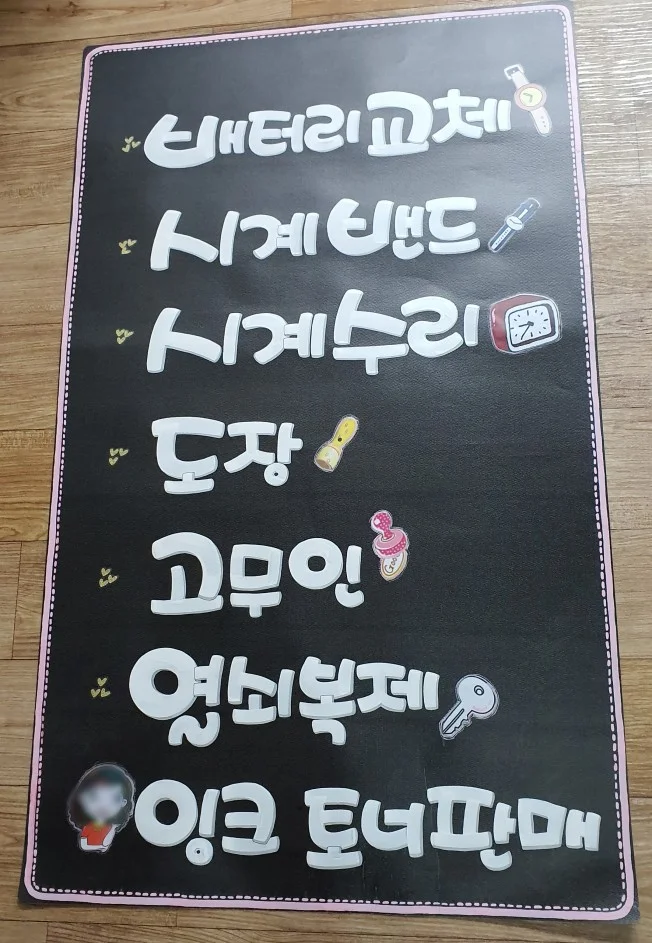 배터리교체
시계밴드
시계수리
도장
고무인
Good
열쇠복제
잉크 토너판매